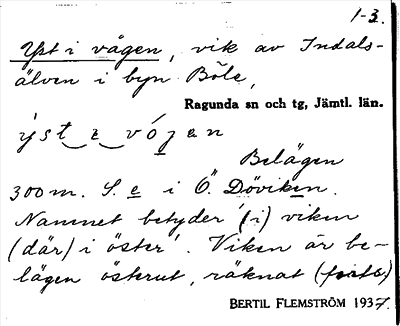 1-3.
Yst i vågen, vik av Indals-
älven i byn Böle,
Ragunda sn och tg, Jämtl. län.
ýst_e_vógen
Belägen
300 m. S. e i Ö. Döviken.
Namnet betyder '(i) viken
(där) i öster'. Viken är be-
lägen österut, räknat (forts.)
BERTIL FLEMSTRÖM 1937.